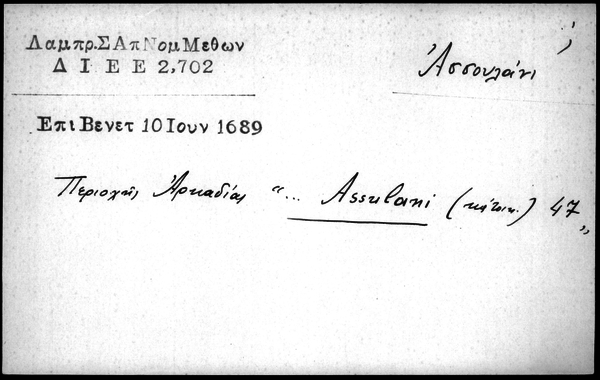 Λαμπρ.ΣΑπΝομΜεθων
Δ Ι Ε Ε 2,702
Ἀσσουλάνι
ΕπιΒενετ 10Ιουν 1689
Περιοχῆς Ἀρκαδίας “... Assulani (κάτοικ.) 47„